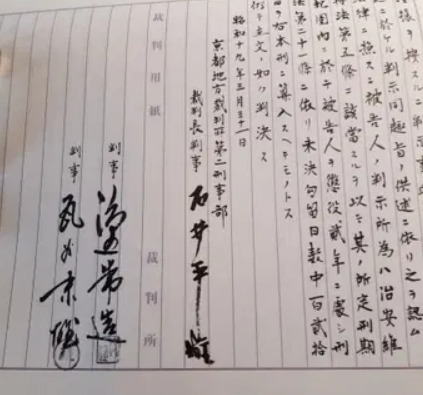 於ケル判示同趣旨ノ供述ニ依リ之ヲ認ム
法律ニ照スニ被告人ノ判示所為ハ治安維
持法第五條ニ該當スルヲ以テ其ノ所定刑期
範囲内ニ於テ被告人ヲ懲役貳年ニ處シ刑
法第二十一條ニ依リ未決勾留日数中百貳拾
日ヲ右本刑ニ算入スヘキモノトス
仍テ主文ノ如ク判決ス
昭和十九年三月三十一日
京都地方裁判所第二刑事部
裁判長判事 石井平雄
判事
判事
裁判用紙
裁判所